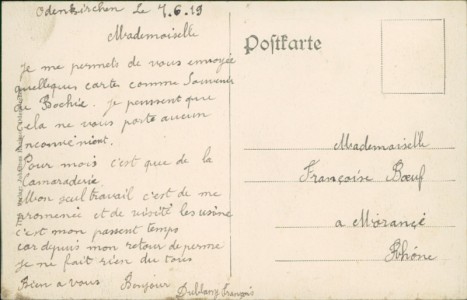 Odenkirchen le 7.6.19
Mademoiselle
Je me permets de vous envoyée
quelleques carte comme Souvenir
de Bochie. je penssent que
cela ne vous porte aucun
inconvénient.
Pour mois c'est que de la
Camaraderie
Mon seul travail c'est de me
promenée et de visité les usine
c'est mon passent temps
car depuis mon retour de perme
je ne fait rien du tous
Bien a vous Bonjour
Dublanz François
Postkarte
Mademoiselle
Françoise Bœuf
a Morançé
Rhône